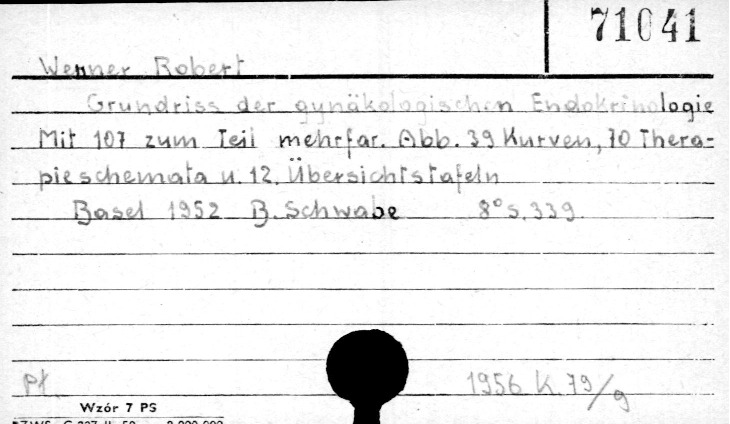 71041
Wenner Robert
Grundriss der gynäkologischen Endokrinologie
Mit 107 zum Teil mehrfar. Abb. 39 Kurven, 10 Thera=
pieschemata u. 12. Übersichtstafeln
Basel 1952 B. Schwabe 8° S. 339.
Pł. 1956 K. 79/9
Wzór 7 PS